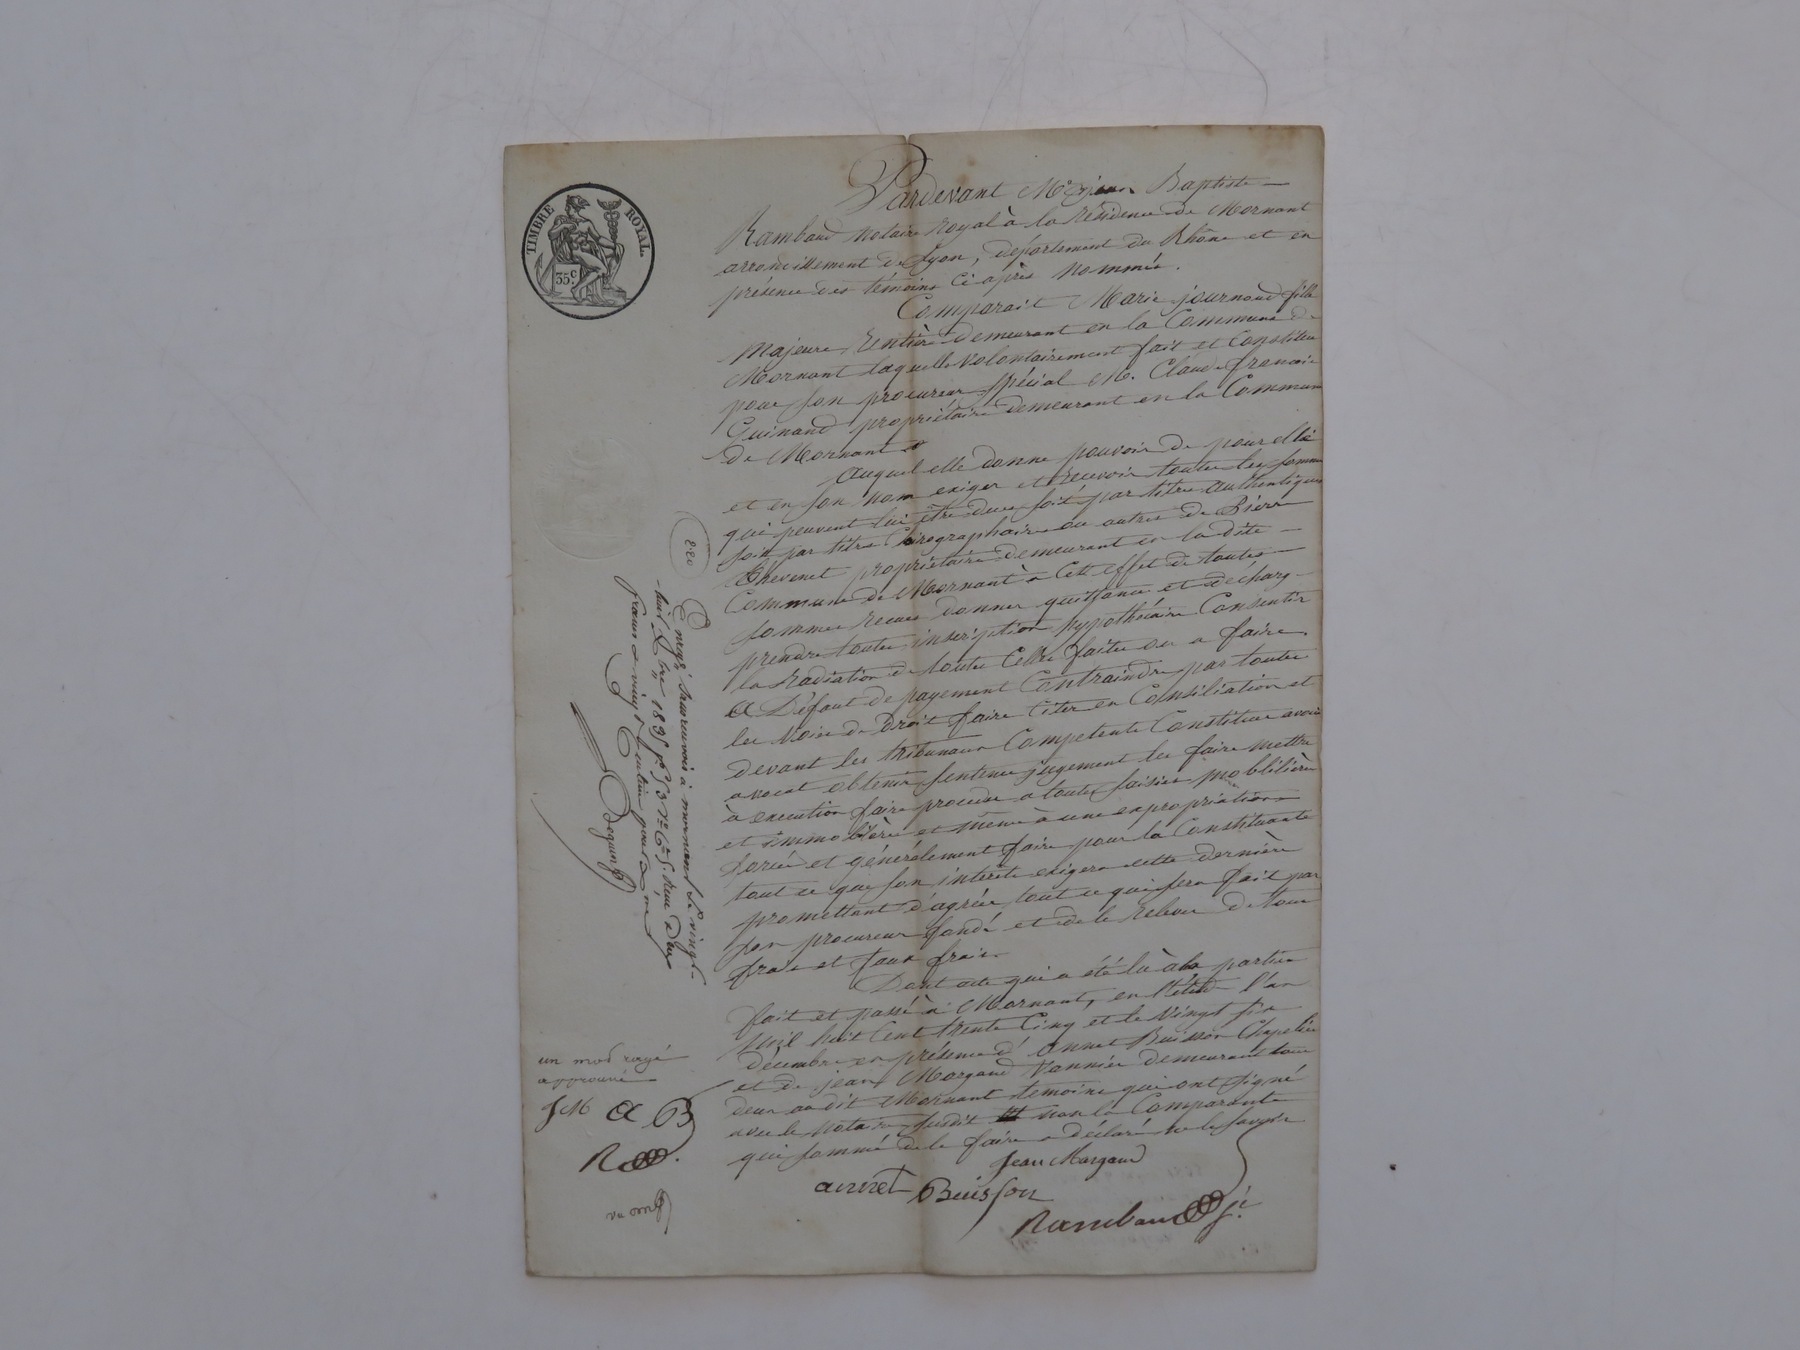 TIMBRE ROYAL
35 c.
Pardevant Me jean Baptiste
Rambaud Notaire Royal à la Résidence de Mornant
arrondissement de Lyon, département du Rhône et en
présence des témoins Ci après Nommés.
Comparait Marie journoud fille
Majeure, Rentière demeurant en la Commune de
Mornant laquelle Volontairement fait et Constitue
pour son procureur spécial M. Claude françois
Guinand propriétaire demeurant en la Commune
de Mornant
auquel elle donne pouvoir de pour elle
et en son nom exiger et recevoir toutes les sommes
qui peuvent lui être dues soit par titres authentiques
soit par titres Chirographaires ou autres de Pierre
Thevenet propriétaire demeurant en la dite
Commune de Mornant à Cet effet de toutes
sommes Recues donner quittance et décharge
prendre toutes inscription hypothécaire Consentir
la Radiation de toutes Celles faites ou a faire.
A Défaut de payement Contraindre par toutes
les Voies de Droit faire Citer en Consiliation et
devant les tribunaux Competents Constituer avoué
avocat obtenir sentence jugement les faire mettre
à execution faire proceder a toutes saisies mobilières
et immobilère et même à une expropriation
forcée et générélement faire pour la Constituante
tout ce que son intérêt exigera cette dernière
promettant d'agréer tout ce qui sera fait par
son procureur fondé et de le Relever de tous
frais et faux frais.
Dont acte qui a été lu à la partie
fait et passé à Mornant, en l'étude l'an
Mil huit Cent trente Cinq et le Vingt six
décembre en présence d'annet Buisson Chapelier
et de jean Margaud Vannier demeurant tous
deux au dit Mornant temoins qui ont signé
avec le Notaire susdit non la Comparante
qui sommé de le faire a déclaré ne le savoir
Jean Margaud
annet Buisson
Rambaud
220
Enregé à mornant le vingt
huit Xbre 1835 fo 53 Vo Ce 5. Reçu deux
francs vingt centimes pour
un mot rayé
approuvé
JM A B
R